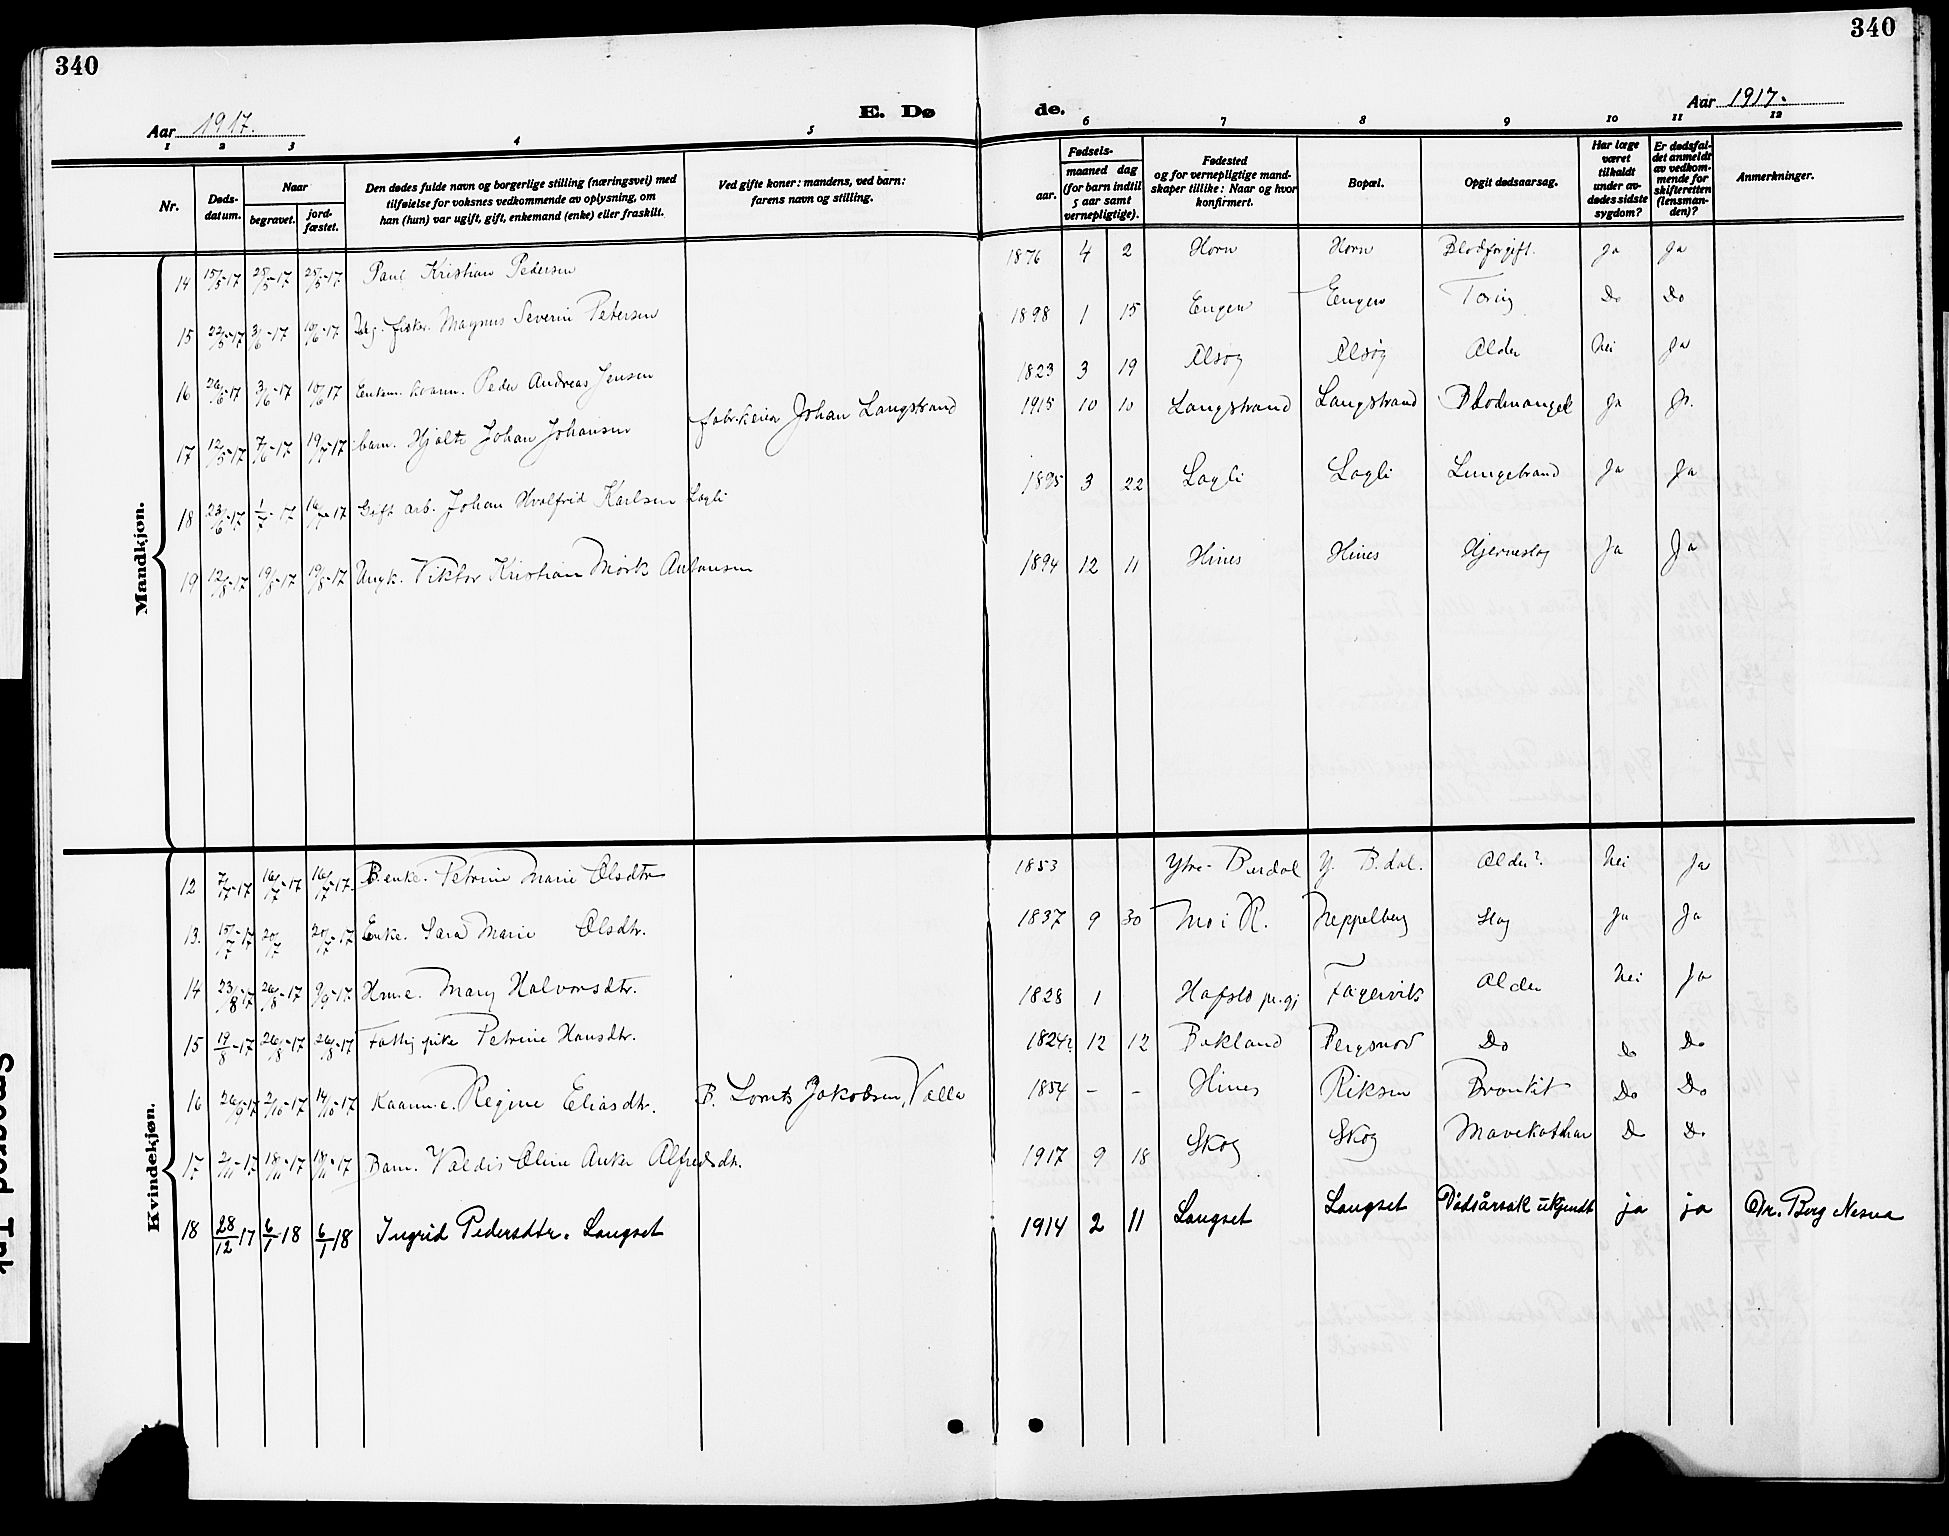 340
340
E. Dø de.
Aar 1917.
Aar 1917.
1 2 3 4 5 6 7 8 9 10 11 12
Nr.
Døds-
datum.
Naar
begravet.
jord-
fæstet.
Den dødes fulde navn og borgerlige stilling (næringsvei) med
tilføielse for voksnes vedkommende av oplysning, om
han (hun) var ugift, gift, enkemand (enke) eller fraskilt.
Ved gifte koner: mandens, ved barn:
farens navn og stilling.
Fødsels-
aar.
maaned dag
(for barn indtil
5 aar samt
vernepligtige).
Fødested
og for vernepligtige mand-
skaper tillike: Naar og hvor
konfirmert.
Bopæl.
Opgit dødsaarsag.
Har læge
været
tilkaldt
under av-
dødes sidste
sygdom?
Er dødsfal-
det anmeldt
av vedkom-
mende for
skifteretten
(lensman-
den)?
Anmerkninger.
Mandkjøn.
14 15/5-17 25/5-17 25/5-17 Paul Kristian Pedersen 1876 4 2 Horn Horn Blodforgift. Ja Ja
15 22/5-17 3/6-17 10/6-17 fisker. Magnus Severin Petersen 1898 1 15 Engen Engen Tæring Do Do
16 3/6-17 10/6 17 Peder Andreas Jensen 1823 3 19 Alsøy Alsøy Alder Nei Ja
17 12/5-17 7/6-17 barn. Hjalte Johan Johansen Johan Langstrand 1915 10 10 Langstrand Langstrand Blodmangel Ja Ja
18 23/6-17 1/7-17 Gift arb. Johan Hvalfrid Karlsen Lagli 1895 3 22 Lagli Lagli Lungebrand Ja Ja
19 12/8-17 19/8-17 19/8-17 Ungk. Viktor Kristian Mørk Antonsen 1894 12 11 Hines Hines Hjerneslag Ja Ja
Kvindekjøn.
12 7/7-17 16/7-17 16/7-17. enke. Petrine Marie Olsdtr 1853 Ytre-Bardal Y. B.dal. Alder? Nei Ja
13. 15/7-17 20/7 20/7-17 Enke. Sara Marie Olsdtr. 1837 9 30 Mo i R. Neppelberg Slag Ja Ja
14 23/8-17 26/8-17 9/9-17. Hm.e. Mary Halvorsdtr. 1828 1 Hafslo pr.gj Fagervik Alder Nei Ja
15 19/8-17 26/8-17 26/8-17 Fattig pike Petrine Hansdtr. 1824? 12 12 Bakland Bergsnov Do Do Do
16 26/9-17 2/10-17 14/10-17 Kaarm.e. Regine Eliasdtr. B. Lornts Jakobsen, Valla 1854 - - Hines Riksen Bronkit Do Do
17 2/11-17 18/11-17 18/11-17 Barn. Valdis Oline Anke Alfredsdtr. 1917 9 18 Skog Skog Mavekathar Do Do
18 28/12 17 6/1-18 6/1 18 Ingrid Pedersdtr. Langset 1914 2 11 Langset Langset Dødsårsak ukjendt ja ja Dr. Berg Nesna